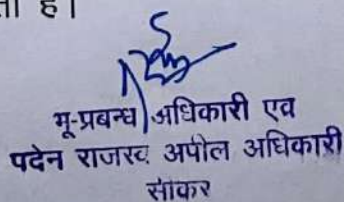 ता है।
भू-प्रबन्ध अधिकारी एव
पदेन राजस्व अपील अधिकारी
सीकर